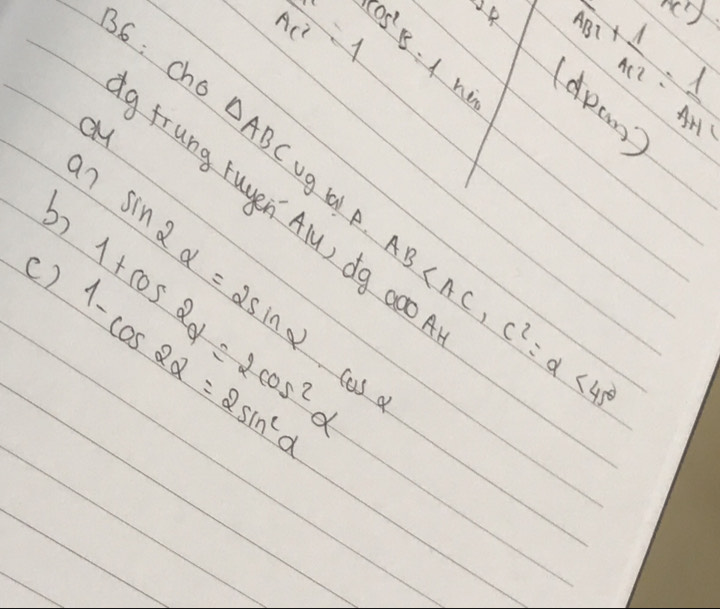 AC² = 1
cos²B = 1 nên
AB² + 1/AC² = 1/AH²
(đpcm)
B6: Cho △ABC vg tại A. AB < AC, C^ = α < 45°
đg trung tuyến AM, đg cao AH
CM
a) sin 2α = 2sin α . cos α
b) 1 + cos 2α = 2cos² α
c) 1 - cos 2α = 2sin² α